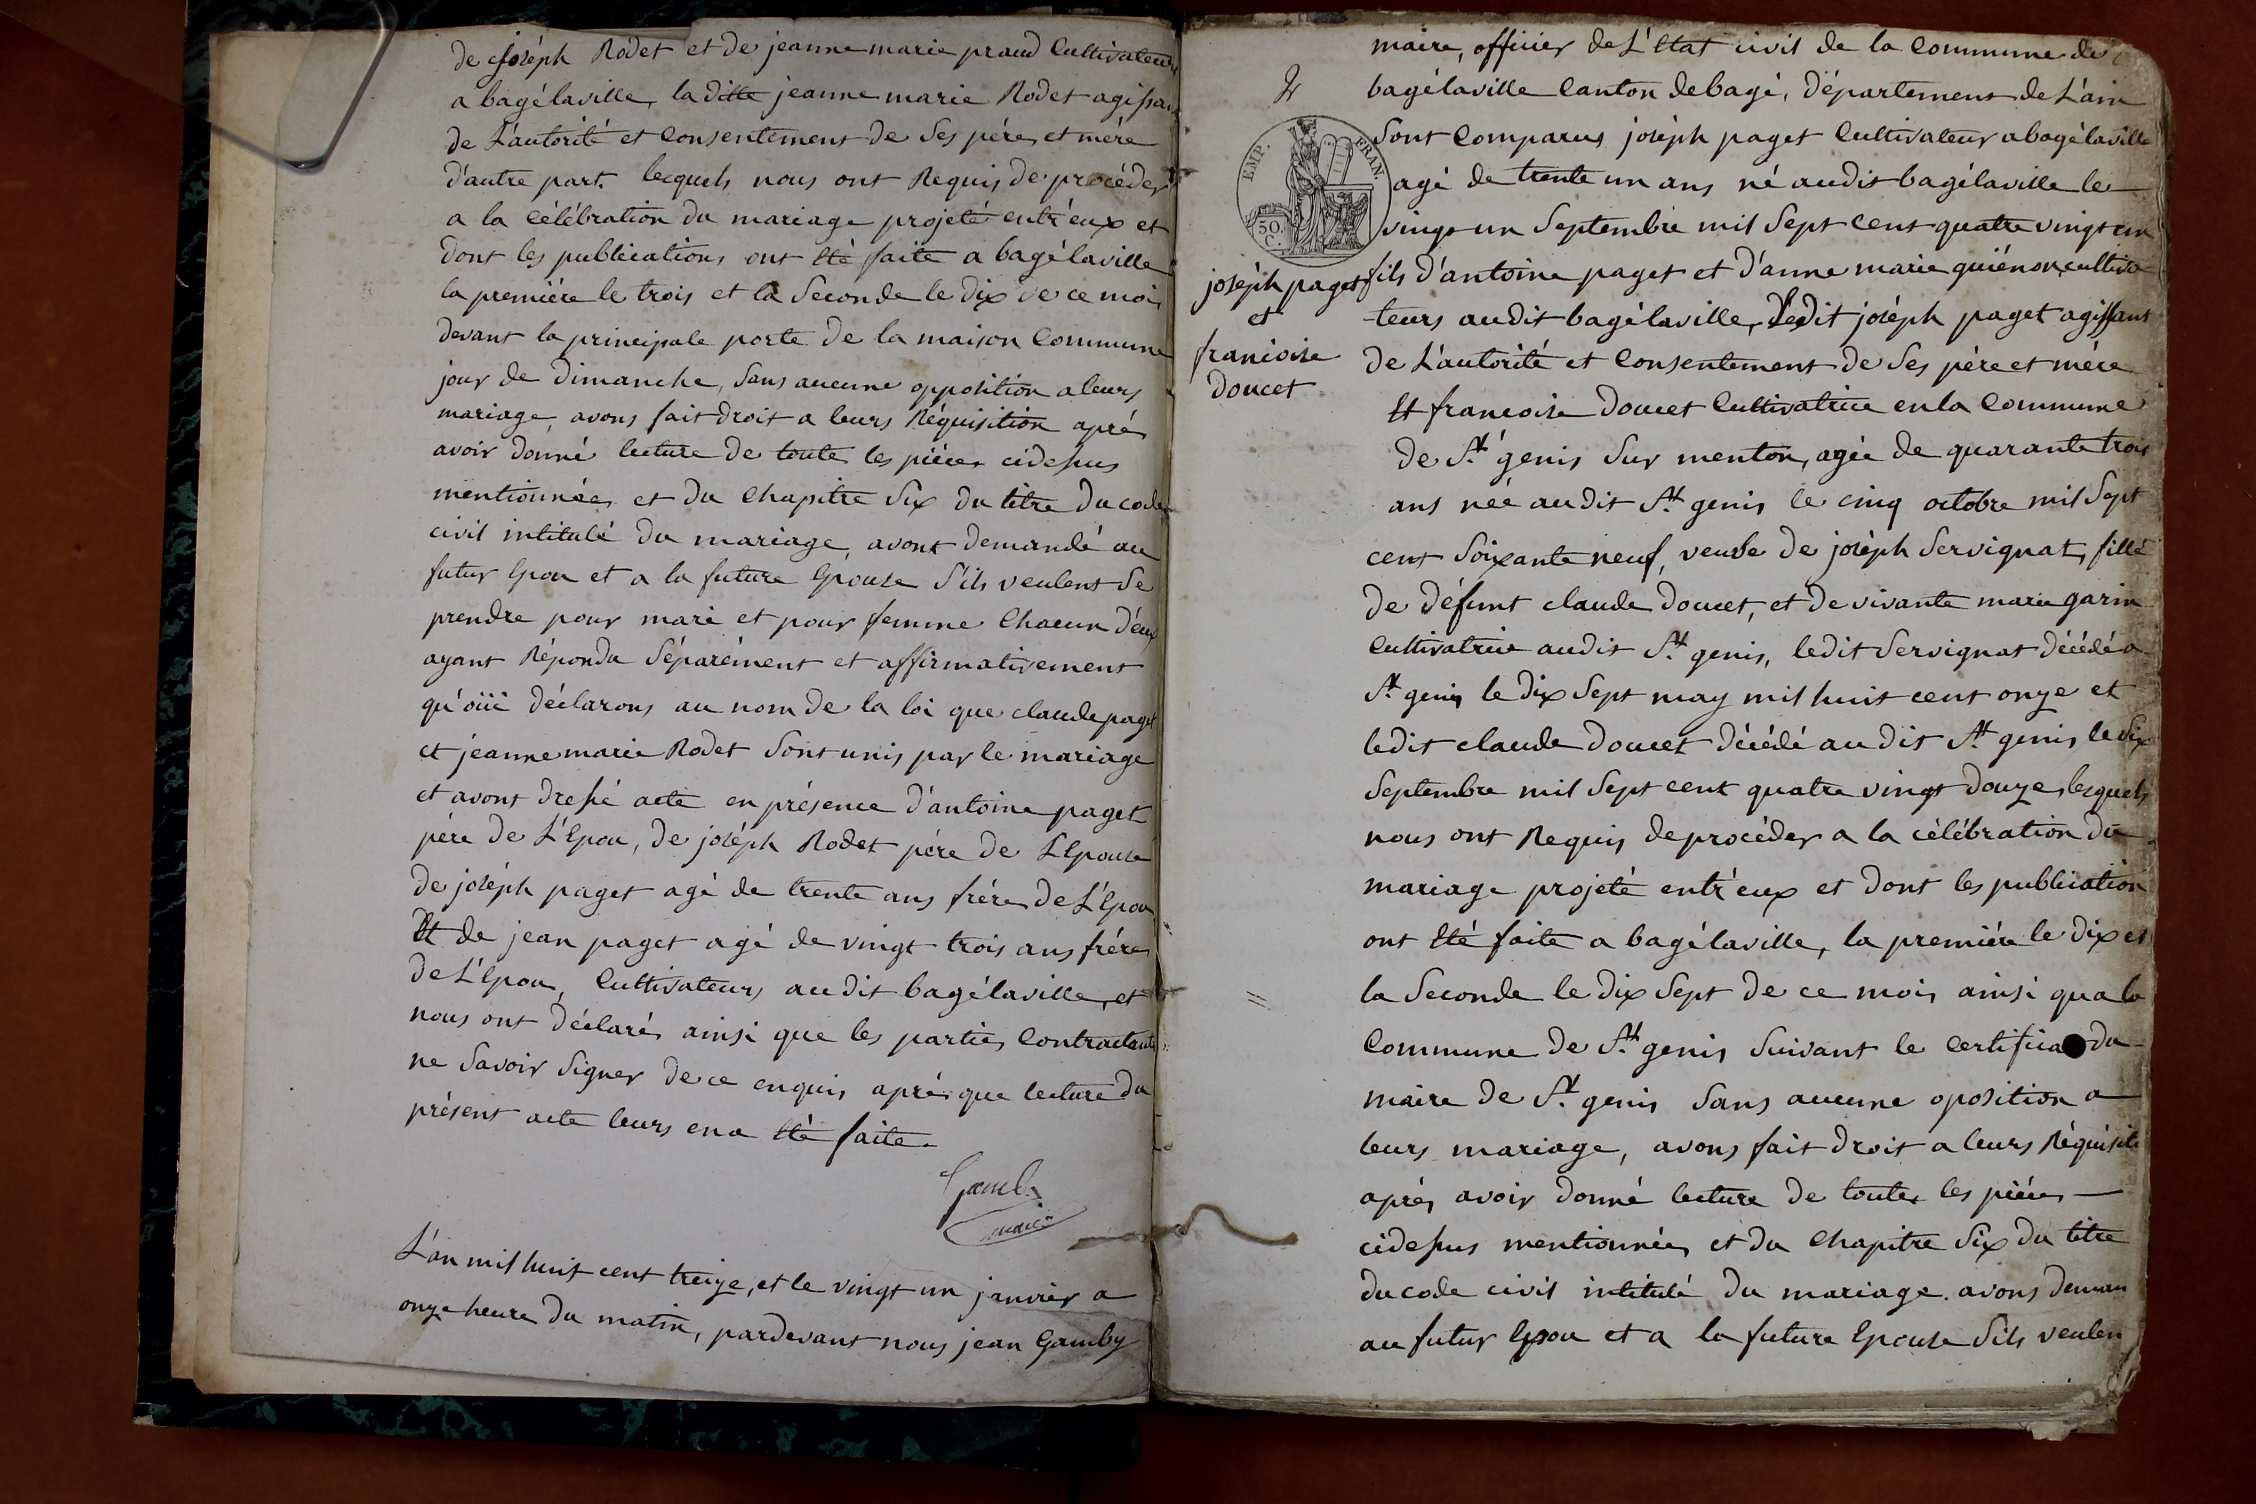 de joséph Rodet et de jeanne marie praud Cultivateurs
a bagélaville, la ditte jeanne marie Rodet agissan
de L'autorité et Consentement de Ses pére, et mére
d'autre part. lecquels nous ont Requis de procéder
a la Célébration du mariage projeté entr'eux et
dont les publications ont été faite a bagélaville
la premiére le trois et la Seconde le dix de ce mois
devant la principale porte de la maison Commune
jour de dimanche, Sans aucune opposition a leurs
mariage, avons fait droit a leurs Réquisition aprés
avoir donné lecture de toute les piéces cidessus
mentionnées et du Chapitre Six du titre du code
civil intitulé du mariage, avont demandé au
futur Epou et a la future Epouse S'ils veulent Se
prendre pour mari et pour femme Chacun d'eux
ayant Répondu Séparément et affirmativement
qu'oüi déclarons au nom de la loi que claude paget
et jeanne marie Rodet Sont unis par le mariage
et avont dressé acte en présence d'antoine paget
pére de L'Epou, de joséph Rodet pére de L'Epouse
de joséph paget agé de trente ans frére de L'Epou
Et de jean paget agé de vingt trois ans frére
de L'Epou, Cultivateurs audit bagélaville, et
nous ont déclarés ainsi que les parties Contractante
ne Savoir Signer de ce enquis aprés que lecture du
présent acte leurs en a été faite.
Gamby
maire
L'an mil huit cent treize, et le vingt un janvier a
onze heure du matin, pardevant nous jean Gamby
maire, officier de L'Etat civil de la Commune de
bagélaville Canton de bagé, département de L'ain
Sont Comparus joséph paget Cultivateur a bagélaville
agé de trente un ans né audit bagélaville le
vingt un Septembre mil Sept Cent quatre vingt un
fils d'antoine paget et d'anne marie quiénon, cultiva
teurs audit bagélaville, Ledit joséph paget agissant
de L'autorité et Consentement de Ses pére et mére
EMP. FRAN.
50.
C.
joséph paget
et
francoise
doucet
Et francoise doucet Cultivatrice en la Commune
de St genis Sur menton, agée de quarante trois
ans née audit St genis le cinq octobre mil Sept
cent Soixante neuf, veuve de joséph Servignat, fille
de défunt claude doucet, et de vivante marie garin
Cultivatrice audit St genis, ledit Servignat décédé a
St genis le dix Sept may mil huit cent onze et
ledit claude doucet décédé audit St genis, le Six
Septembre mil Sept cent quatre vingt douze, lesquels
nous ont Requis de procéder a la célébration du
mariage projeté entr'eux et dont les publication
ont été faite a bagélaville, la premiére le dix et
la Seconde le dix Sept de ce mois ainsi qu a la
Commune de St genis Suivant le certifica du
maire de St genis Sans aucune oposition a
leurs mariage, avons fait droit a leurs Réquisiti
aprés avoir donné lecture de toutes les piéces
cidessus mentionnées et du Chapitre Six du titre
du code civil intitulé du mariage. avons deman
au futur Epou et a la future Epouse S'ils veulen